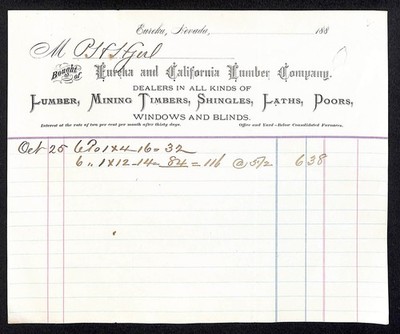 Eureka, Nevada, 188
M P. N. Hjul
Bought of Eureka and California Lumber Company.
DEALERS IN ALL KINDS OF
LUMBER, MINING TIMBERS, SHINGLES, LATHS, DOORS,
WINDOWS AND BLINDS.
Interest at the rate of two per cent per month after thirty days. Office and Yard—Below Consolidated Furnaces.
Oct 25 6 Ps 1x4-16=32
6 " 1x12-14=84=116 @ 5 1/2 6 38